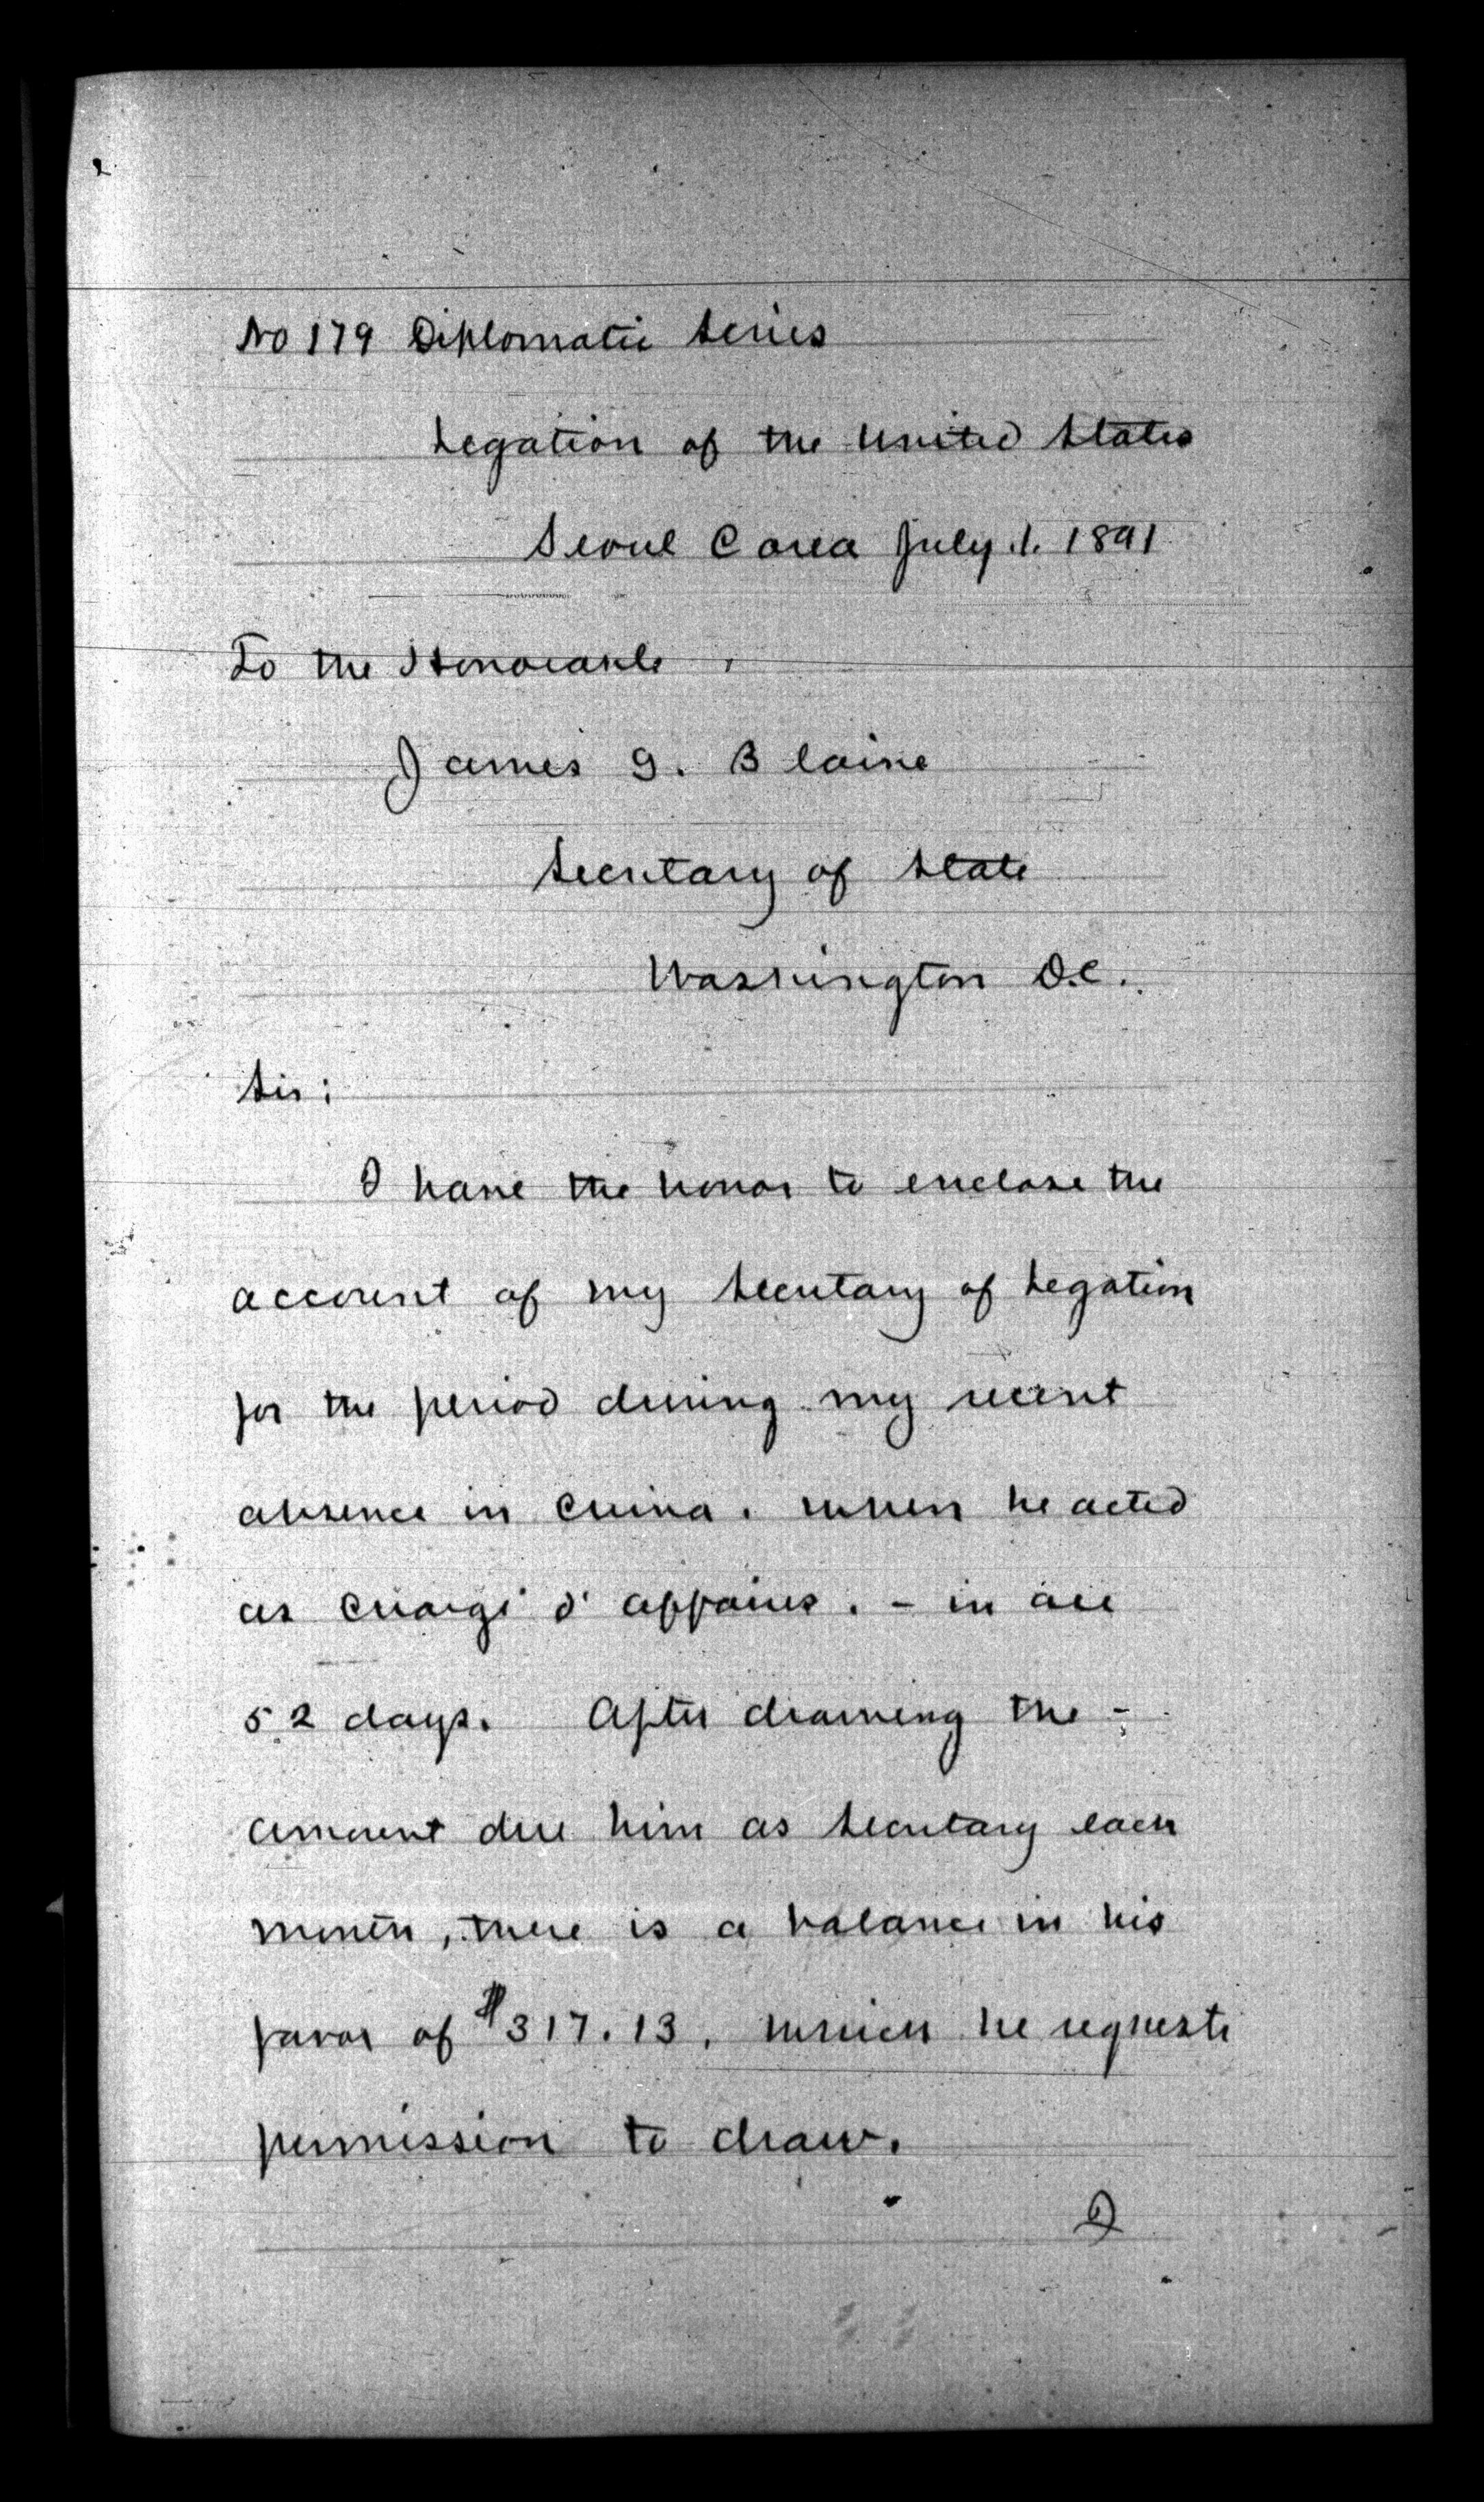 No 179 Diplomatic Series
Legation of the United States
Seoul Corea July 1. 1891
To the Honorable
James G. Blaine
Secretary of State
Washington D.C.
Sir:
I have the honor to enclose the
account of my Secretary of Legation
for the period during my recent
absence in China. when he acted
as Chargé d'affaires. - in all
52 days. After drawing the -
amount due him as Secretary each
month, there is a balance in his
favor of $317.13. which he requests
permission to draw.
I